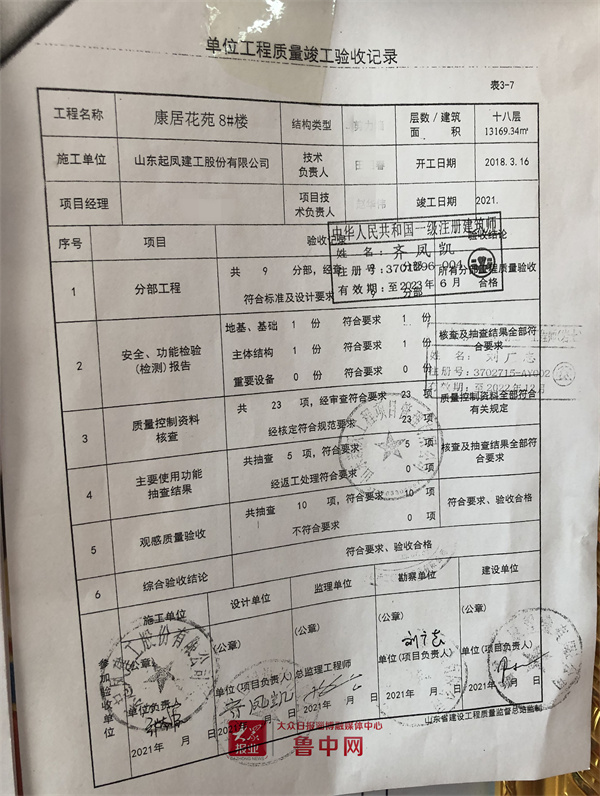 单位工程质量竣工验收记录
表3-7
工程名称 康居花苑 8#楼 结构类型 层数/建筑面积 十八层 13169.34㎡
施工单位 山东起凤建工股份有限公司 技术负责人 开工日期 2018.3.16
项目经理 项目技术负责人 竣工日期 2021.
序号 项目 验收记录 验收结论
中华人民共和国一级注册建筑师
姓名：齐凤凯
注册号：3702796-004
有效期：至2023年6月
1 分部工程 共 9 分部，经查 9 分部 符合标准及设计要求 9 分部 所有分部工程质量验收合格
2 安全、功能检验(检测)报告 地基、基础 1 份 符合要求 1 份 核查及抽查结果全部符合要求
主体结构 1 份 符合要求 1 份
重要设备 0 份 符合要求 0 份
姓名：刘广志
注册号：3702715-AY002
有效期：至2022年12月
3 质量控制资料核查 共 23 项，经审查符合要求 23 项 质量控制资料全部符合有关规定
经核定符合规范要求 23 项
4 主要使用功能抽查结果 共抽查 5 项，符合要求 5 项 核查及抽查结果全部符合要求
经返工处理符合要求 0 项
5 观感质量验收 共抽查 10 项，符合要求 10 项 符合要求、验收合格
不符合要求 0 项
6 综合验收结论 符合要求、验收合格
参加验收单位 施工单位 设计单位 监理单位 勘察单位 建设单位
(公章) (公章) (公章) (公章) (公章)
刘广志
单位(项目负责人) 总监理工程师 单位(项目负责人) 单位(项目负责人)
齐凤凯
2021年 月 日 2021年 月 日 2021年 月 日 2021年 月 日
山东省建设工程质量监督总站监制
大众报业
DAZHONG NEWS
大众日报淄博融媒体中心
鲁中网